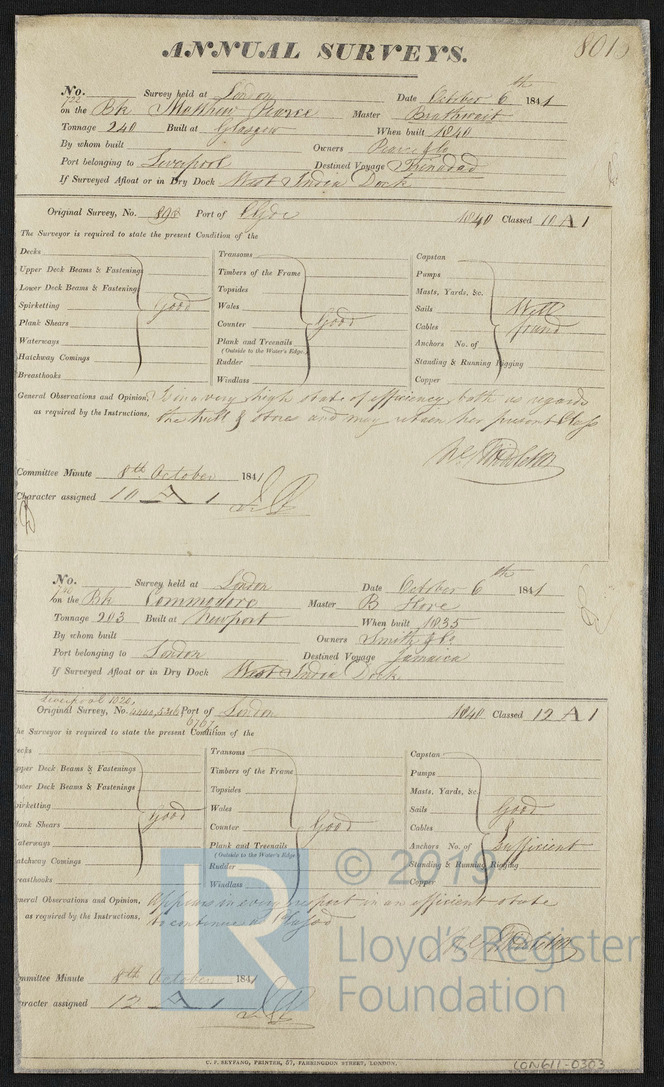 ANNUAL SURVEYS.
No. 722 Survey held at London Date October 6th 1841
on the Bk Matthew Pearce Master Brathwait
Tonnage 240 Built at Glasgow When built 1840
By whom built Owners Pearce & Co
Port belonging to Liverpool Destined Voyage Trinidad
If Surveyed Afloat or in Dry Dock West India Dock
Original Survey, No. 898 Port of Clyde 1840 Classed 10 A 1
The Surveyor is required to state the present Condition of the
Decks
Upper Deck Beams & Fastening
Lower Deck Beams & Fastening
Spirketting
Plank Shears
Waterways
Hatchway Comings
Breasthooks
Good
Transoms
Timbers of the Frame
Topsides
Wales
Counter
Plank and Treenails
(Outside to the Water's Edge
Rudder
Windlass
Good
Capstan
Pumps
Masts, Yards, &c.
Sails
Cables
Anchors No. of
Standing & Running Rigging
Copper
Well
found
General Observations and Opinion, Is in a very high state of efficiency both as regards
as required by the Instructions, the hull & stores and may retain her present Class
Committee Minute 8th October 1841
Character assigned 10 A 1
No. Survey held at London Date October 6th 1841
on the Bk Commodore Master B
Tonnage 203 Built at Newport When built 1835
By whom built Owners Smith & Co
Port belonging to London Destined Voyage Jamaica
If Surveyed Afloat or in Dry Dock West India Dock
Liverpool 1020,
Original Survey, No. Port of London 1840 Classed 12 A 1
he Surveyor is required to state the present Condition of the
ecks
pper Deck Beams & Fastenings
ower Deck Beams & Fastenings
pirketting
lank Shears
aterways
atchway Comings
reasthooks
Good
Transoms
Timbers of the Frame
Topsides
Wales
Counter
Plank and Treenails
(Outside to the Water's Edge
Rudder
Windlass
Good
Capstan
Pumps
Masts, Yards, &c.
Sails
Cables
Anchors No. of
Standing & Running Rigging
Copper
Good
Sufficient
eneral Observations and Opinion, Appears in every respect in an efficient state
as required by the Instructions, to continue as Classed
ommittee Minute 8th October 1841
aracter assigned 12 A 1
C. F. SEYFANG, PRINTER, 57, FARRINGDON STREET, LONDON.
LON611-0303
© 2019
LR
Lloyd's Register
Foundation